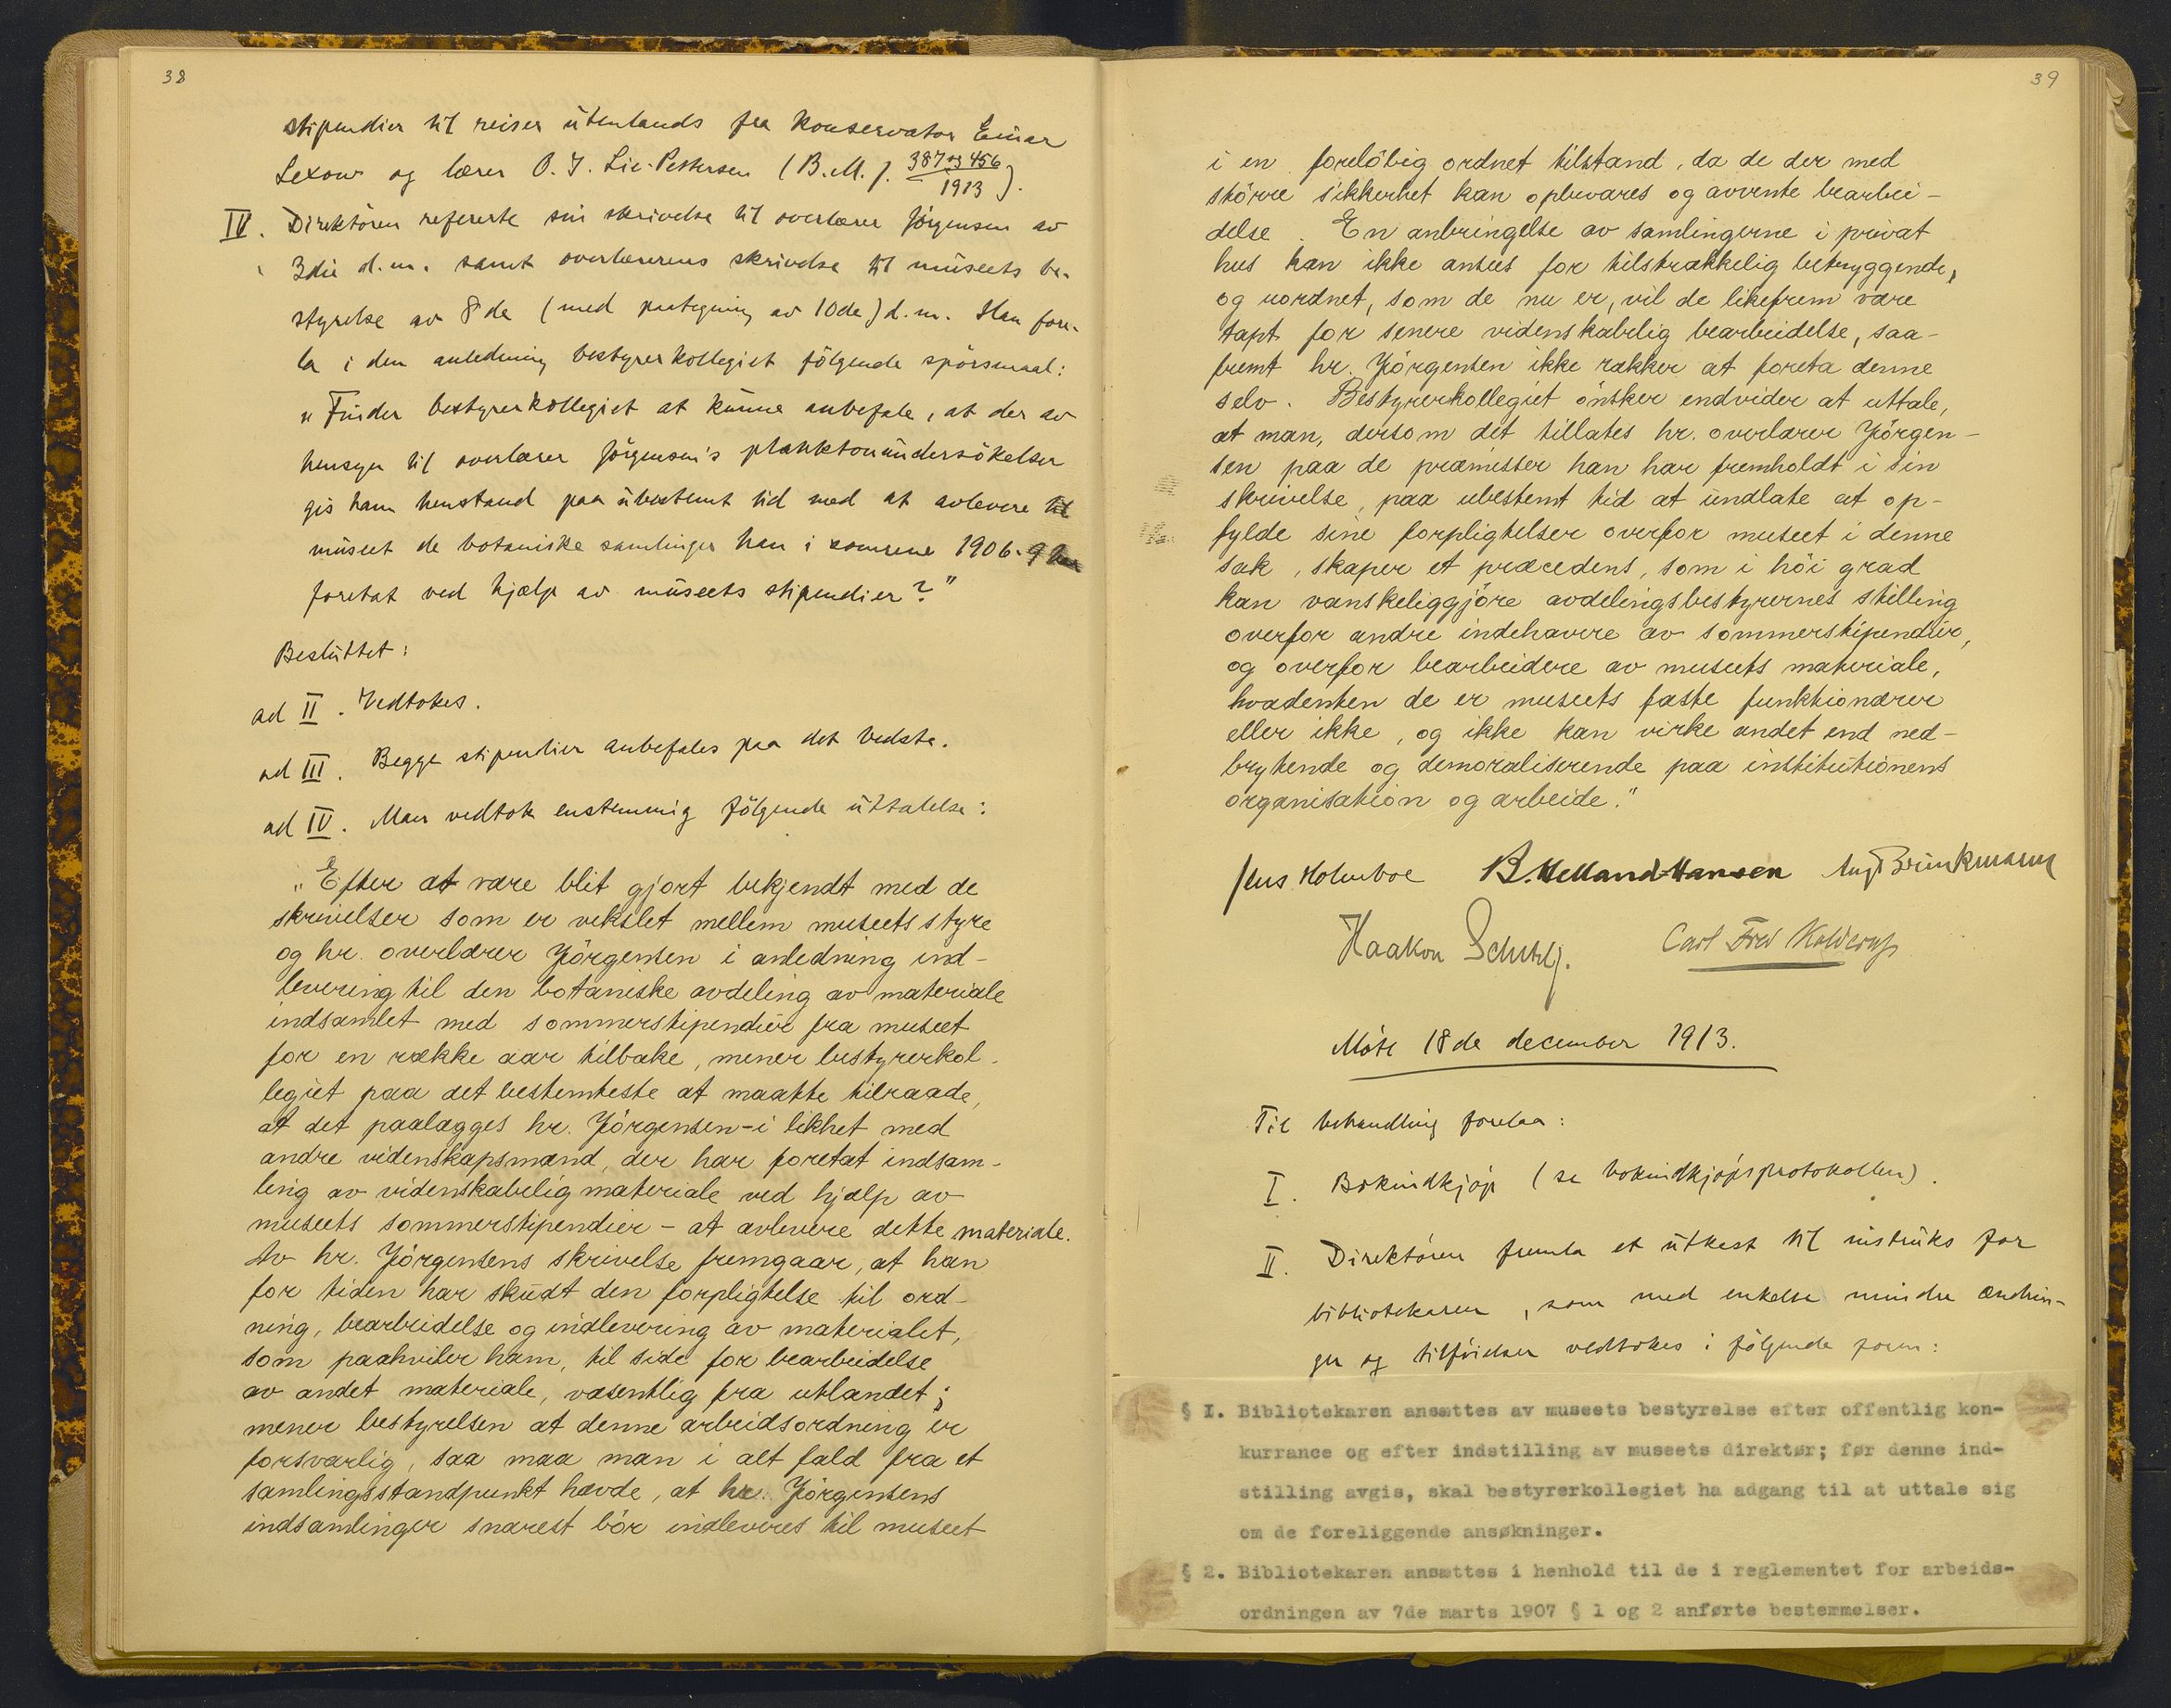 38
stipendier til reiser utenlands fra konservator Einar
Lexow og lærer O. J. Lie-Pettersen (B. M. J. 387 og 456 / 1913).
IV. Direktören refererte sin skrivelse til overlærer Jörgensen av
3die d.m. samt overlærerens skrivelse til museets be-
styrelse av 8de (med paategning av 10de) d.m. Han fore-
la i den anledning bestyrerkollegiet fölgende spörsmaal:
"Finder bestyrerkollegiet at kunne anbefale, at der av
hensyn til overlærer Jörgensen's planktonundersökelser
gis ham henstand paa übestemt tid med at avlevere til
museet de botaniske samlinger han i somrene 1906-9 har
foretat ved hjælp av museets stipendier?"
Besluttet:
ad II. Vedtokes.
ad III. Begge stipendier anbefales paa det bedste.
ad IV. Man vedtok enstemmig fölgende uttalelse:
"Efter at være blit gjort bekjendt med de
skrivelser som er vekslet mellem museets styre
og hr. overlærer Jörgensen i anledning ind-
levering til den botaniske avdeling av materiale
indsamlet med sommerstipendier fra museet
for en række aar tilbake, mener bestyrerkol-
legiet paa det bestemteste at maatte tilraade,
at det paalægges hr. Jörgensen - i likhet med
andre videnskapsmænd, der har foretat indsam-
ling av videnskabelig materiale ved hjælp av
museets sommerstipendier - at avlevere dette materiale.
Av hr. Jörgensens skrivelse fremgaar, at han
for tiden har skudt den forpligtelse til ord-
ning, bearbeidelse og indlevering av materialet,
som paahviler ham, til side for bearbeidelse
av andet materiale, væsentlig fra utlandet;
mener bestyrelsen at denne arbeidsordning er
forsvarlig, saa maa man i alt fald fra et
samlingsstandpunkt hævde, at hr. Jörgensens
indsamlinger snarest bör indleveres til museet
39
i en foreløbig ordnet tilstand, da de der med
större sikkerhet kan opbevares og avvente bearbei-
delse. En anbringelse av samlingerne i privat
hus kan ikke ansees for tilstrækkelig betryggende,
og uordnet, som de nu er, vil de likefrem være
tapt for senere videnskabelig bearbeidelse, saa-
fremt hr. Jörgensen ikke rækker at foreta denne
selv. Bestyrerkollegiet önsker endvider at uttale,
at man, dersom det tillates hr. overlærer Jörgen-
sen paa de præmisser han har fremholdt i sin
skrivelse, paa ubestemt tid at undlate at op-
fylde sine forpligtelser overfor museet i denne
sak, skaper et præcedens, som i höi grad
kan vanskeliggjöre avdelingsbestyrernes stilling
overfor andre indehavere av sommerstipendier,
og overfor bearbeidere av museets materiale,
hvadenten de er museets faste funktionærer
eller ikke, og ikke kan virke andet end ned-
brytende og demoraliserende paa institutionens
organisation og arbeide."
Jens Holmboe B. Helland-Hansen Aug Brinkmann
Haakon Schetelig. Carl Fred Kolderup
Möte 18de december 1913.
Til behandling forelaa:
I. Bokindkjøp (se bokindkjøpsprotokollen).
II. Direktören fremla et utkast til instruks for
bibliotekaren, som med enkelte mindre ændrin-
ger og tilföielser vedtokes i fölgende form:
§ I. Bibliotekaren ansættes av museets bestyrelse efter offentlig kon-
kurrance og efter indstilling av museets direktør; før denne ind-
stilling avgis, skal bestyrerkollegiet ha adgang til at uttale sig
om de foreliggende ansøkninger.
§ 2. Bibliotekaren ansættes i henhold til de i reglementet for arbeids-
ordningen av 7de marts 1907 § 1 og 2 anførte bestemmelser.